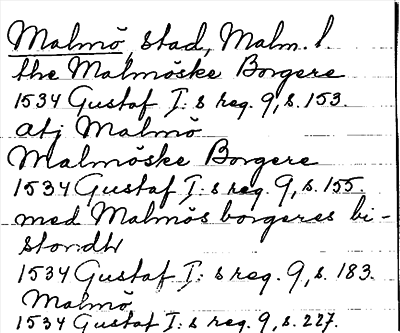 Malmö, stad, Malm. l.
the Malmöske Borgere
1534 Gustaf I:s reg. 9, s. 153.
atj Malmö
Malmöske Borgere
1534 Gustaf I:s reg. 9, s. 155.
med Malmös borgeres bi-
stondh
1534 Gustaf I:s reg. 9, s. 183.
Malmö
1534 Gustaf I:s reg. 9, s. 227.